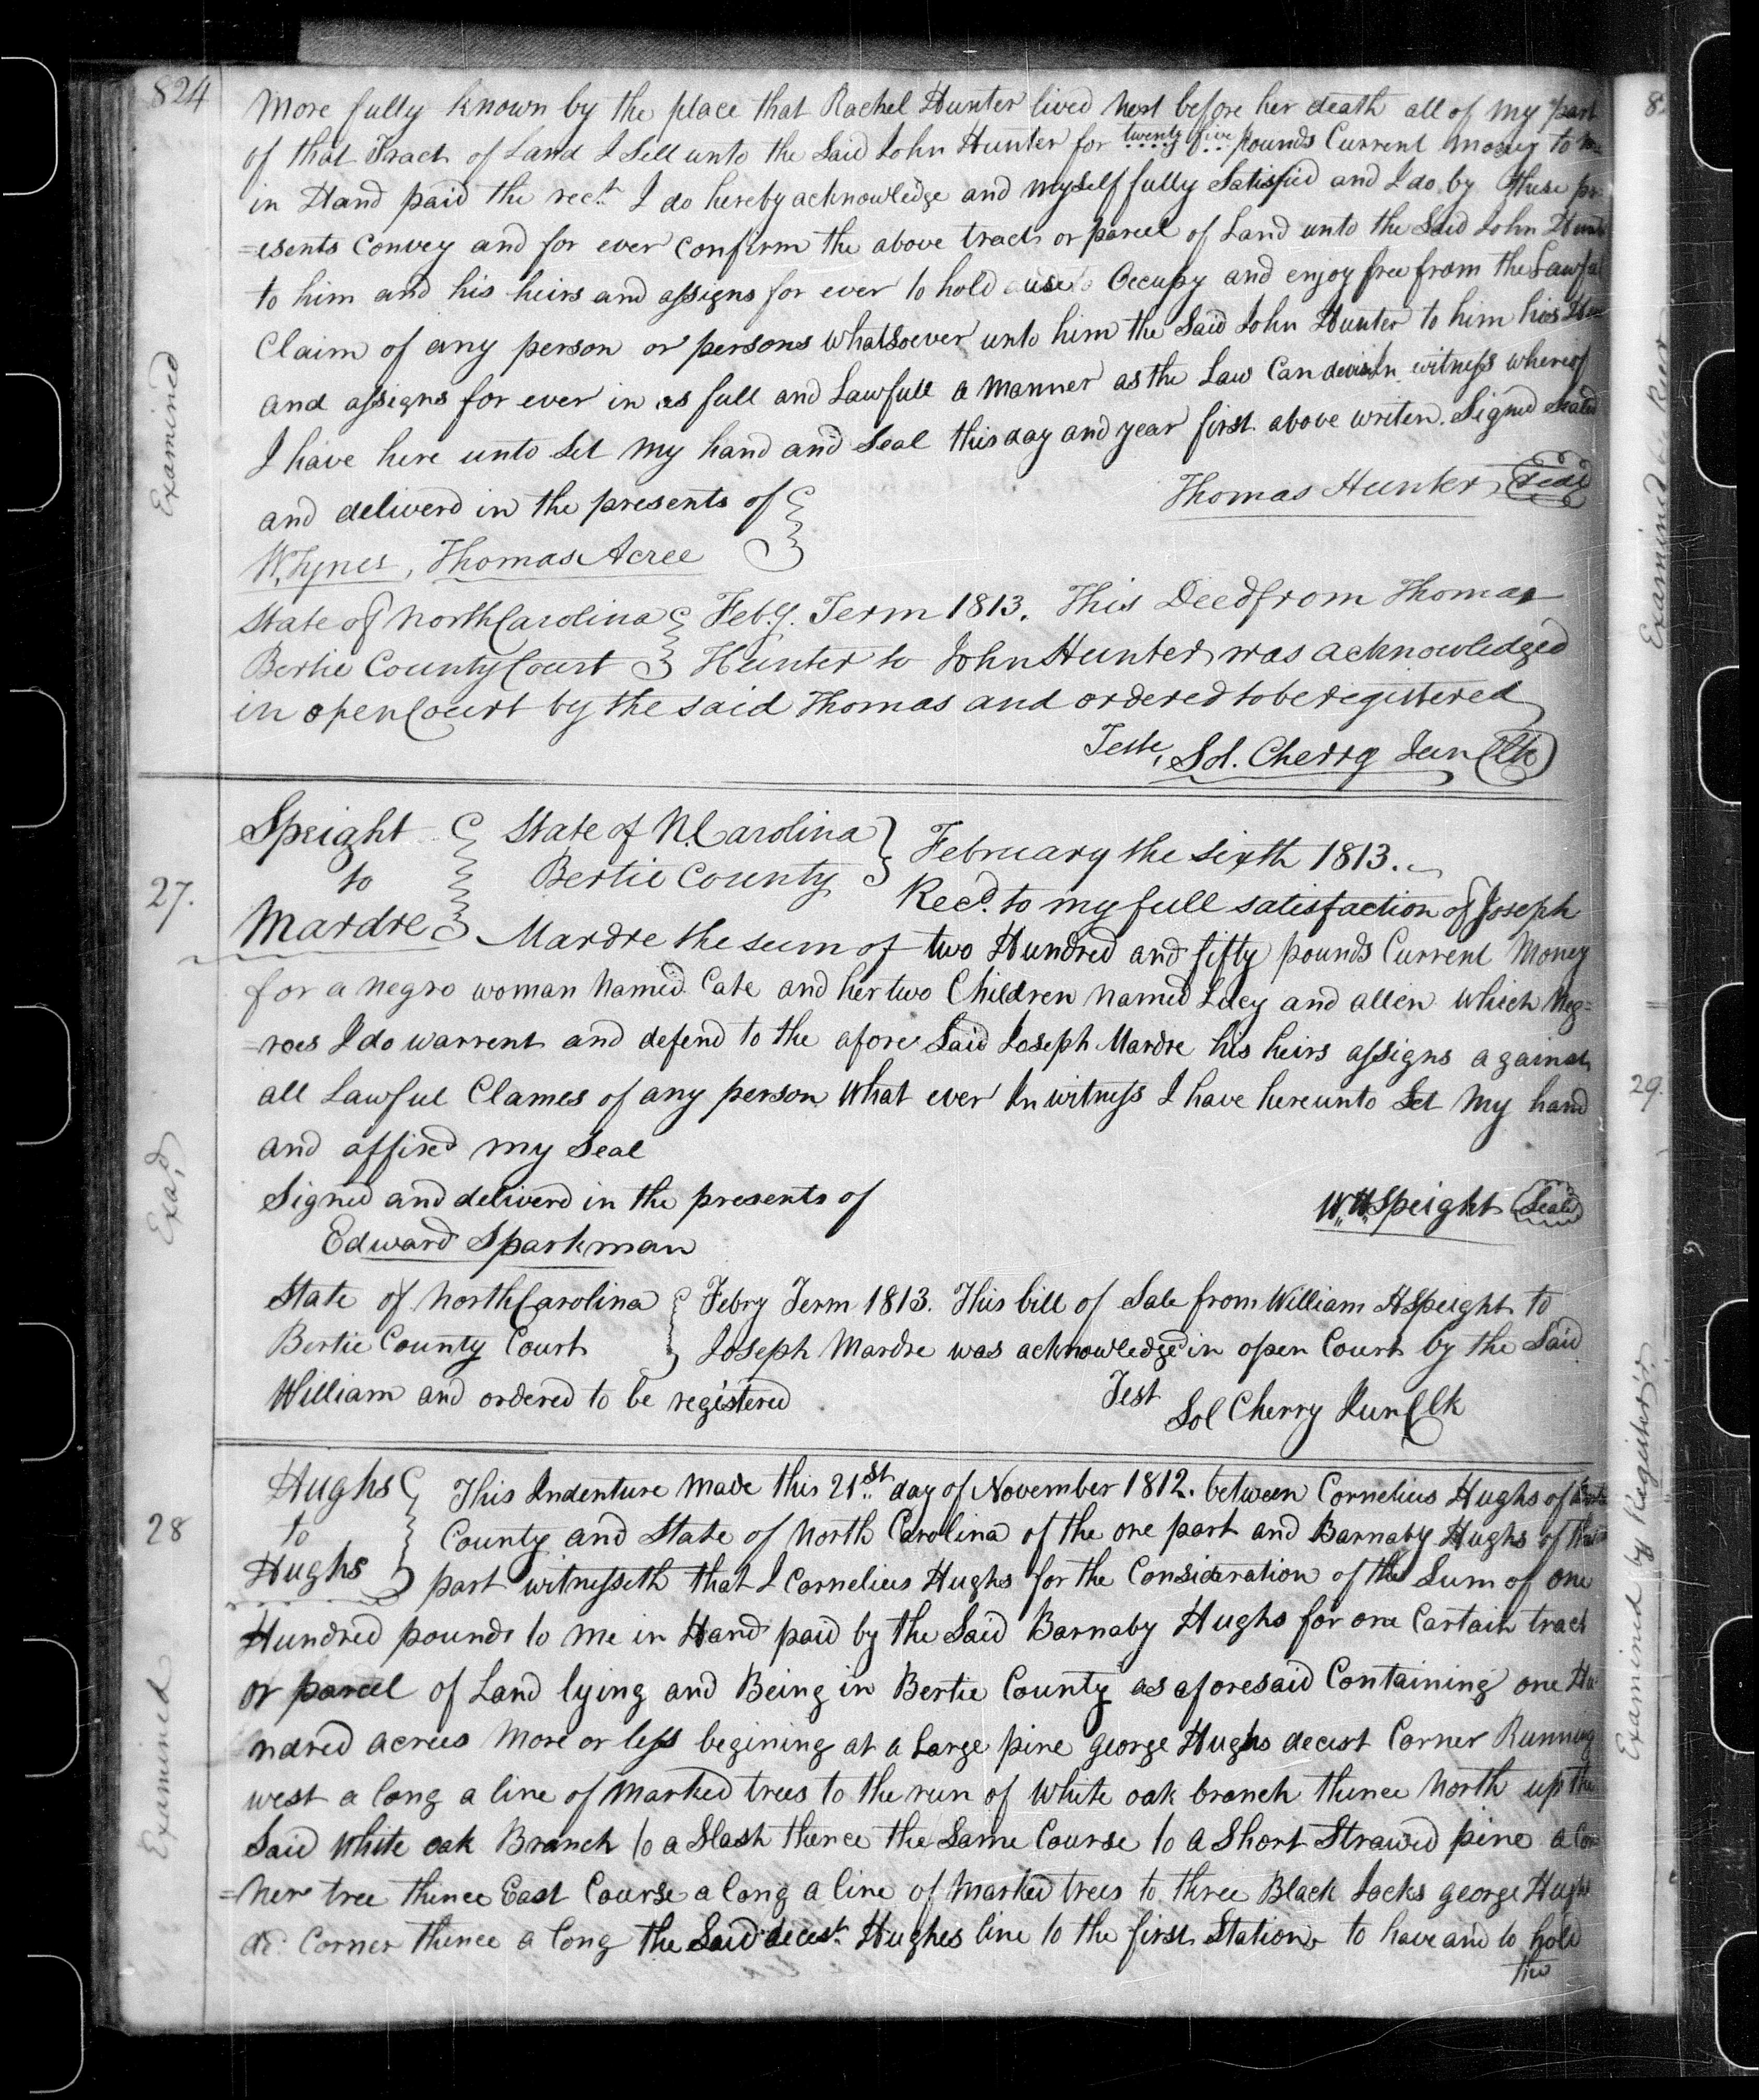 824
More fully known by the place that Rachel Hunter lived next before her death all of my part
of that Tract of Land I Sell unto the Said John Hunter for twenty five pounds Current money to me
in Hand paid the rect. I do hereby acknowledge and myself fully Satisfied and I do by these pr
=esents Convey and for ever Confirm the above tract or parcel of Land unto the Said John Hunt
to him and his heirs and assigns for ever to hold use Occupy and enjoy free from the Lawfu
Claim of any person or persons whatsoever unto him the Said John Hunter to him his
and assigns for ever in as full and Lawfull a manner as the Law Can devise In witness whereof
I have here unto Set my hand and Seal this day and year first above writen. Signed Sealed
and deliverd in the presents of
Thomas Hunter Seal
W, Tynes, Thomas Acree
State of North Carolina Feb.y. Term 1813. This Deed from Thomas
Bertie County Court Hunter to John Hunter was acknowledged
in open Court by the said Thomas and ordered to be registered
Teste, Sol. Cherry Jun Clk
Examined
Speight State of N. Carolina February the sixth 1813.
to Bertie County
27.
Recd. to my full satisfaction of Joseph
Mardre Mardre the sum of two Hundred and fifty pounds Current Money
for a negro woman Named Cate and her two Children named Lucy and allen which Neg=
=roes I do warrent and defend to the afore Said Joseph Mardre his heirs assigns against
all Lawful Clames of any person what ever In witness I have hereunto Set my hand
and affixed my Seal
Signed and deliverd in the presents of
W,, H,, Speight Seal
Edward Sparkman
Exa,d
State of North Carolina Febry Term 1813. This bill of Sale from William H Speight to
Bertie County Court Joseph Mardre was acknowledged in open Court by the Said
William and ordered to be registered Test Sol Cherry Jun Clk
Hughs This Indenture made this 21st day of November 1812. between Cornelius Hughs of
28
to County and State of North Carolina of the one part and Barnaby Hughs of
Hughs part witnesseth that I Cornelius Hughs for the Consideration of the Sum of one
Hundred pounds to me in Hand paid by the Said Barnaby Hughs for one Cartain tract
or parcel of Land lying and Being in Bertie County as aforesaid Containing one Hu
ndred acrees more or less begining at a Large pine george Hughs decest Corner Running
west a long a line of marked trees to the run of White oak branch thence North up the
Said White oak Branch to a Slash thence the Same Course to a Short Strawed pine a Cor
=ner tree thence East Course a long a line of marked trees to three Black Jacks george Hughs
de. Corner thence a long the Said decest. Hughes line to the first Station to have and to hold
the
Examined
29.
Examined by Register